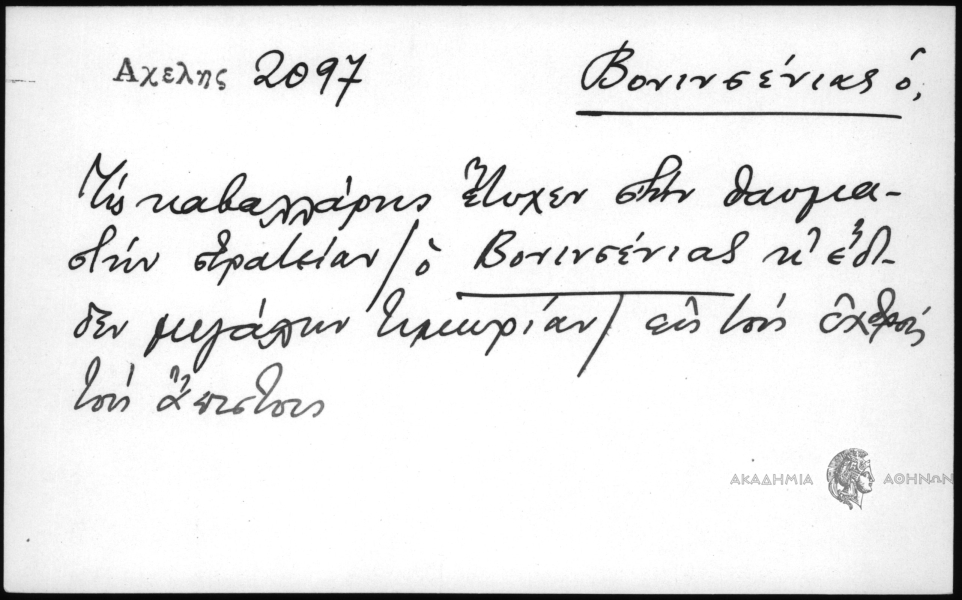 Αχελης 2097
Βονινσένιας ὁ,
Τίς καβαλλάρης ἔτυχεν στὴν θαυμα-
στὴν στρατείαν/ ὁ Βονινσένιας κ' ἔδι-
δεν μεγάλην τιμωρίαν/ εἰς τοὺς ἐχθροὺς
τοὺς ἄπιστους
ΑΚΑΔΗΜΙΑ ΑΘΗΝΩΝ